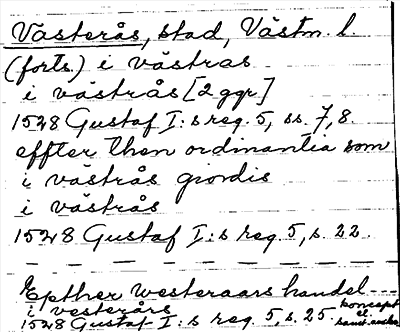 Västerås, stad, Västm. l.
(forts.) i västras
i västrås [2 ggr.]
1528 Gustaf I:s reg. 5, ss. 7, 8.
effter then ordinantia som
i västrås giordis
i västrås
1528 Gustaf I:s reg. 5, s. 22.
Epther westeraars handel ---
i vesterårs koncept
1528 Gustaf I:s reg. 5, s. 25 el.